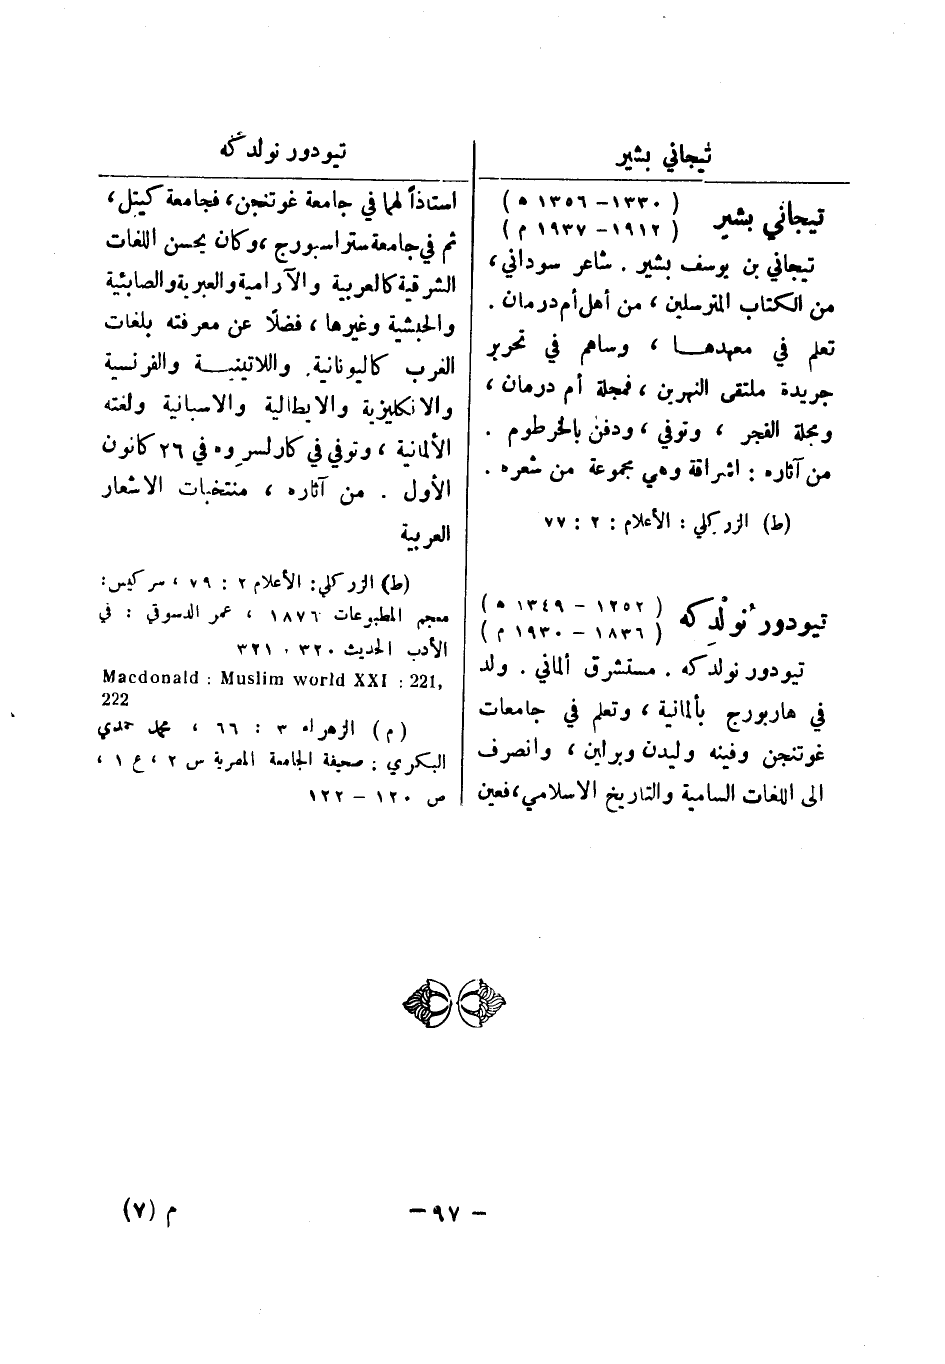 تيجاني بشير
تيجاني بشير (١٣٣٠ – ١٣٥٦ ه)
(١٩١٢ – ١٩٣٧ م)
تيجاني بن يوسف بشير . شاعر سوداني،
من الكتاب المترسلين ، من أهل أم درمان .
تعلم في معهدهــا ، وساهم في تحرير
جريدة ملتقى النهرين ، فمجلة أم درمان ،
ومجلة الفجر ، وتوفي ، ودفن بالخرطوم .
من آثاره : اشراقة وهي مجموعة من شعره .
(ط) الزركلي : الأعلام : ٢ : ٧٧
تيودور نولدكه (١٢٥٢ – ١٣٤٩ ه)
(١٨٣٦ – ١٩٣٠ م)
تيودور نولدكه . مستشرق ألماني . ولد
في هاربورج بألمانية ، وتعلم في جامعات
غوتنجن وفينه وليدن وبرلين ، وانصرف
الى اللغات السامية والتاريخ الاسلامي ، فعين
تيودور نولدكه
استاذاً لهما في جامعة غوتنجن ، فجامعة كيتل ،
ثم في جامعة ستراسبورج ، وكان يحسن اللغات
الشرقية كالعربية والآرامية والعبرية والصابئية
والحبشية وغيرها ، فضلًا عن معرفته بلغات
الغرب كاليونانية واللاتينيــة والفرنسية
والانكليزية والايطالية والاسبانية ولغته
الألمانية ، وتوفي في كارلسروه في ٢٦ كانون
الأول . من آثاره ، منتخبات الاشعار
العربية
(ط) الزركلي : الأعلام ٢ : ٧٩ ، سركيس :
معجم المطبوعات ١٨٧٦ ، عمر الدسوقي : في
الأدب الحديث ٣٢٠ ، ٣٢١
Macdonald : Muslim world XXI : 221,
222
(م) الزهراء ٣ : ٦٦ ، محمد حمدي
البكري : صحيفة الجامعة المصرية س ٢ ، ع ١ ،
ص ١٢٠ – ١٢٢
– ٩٧ –
م (٧)